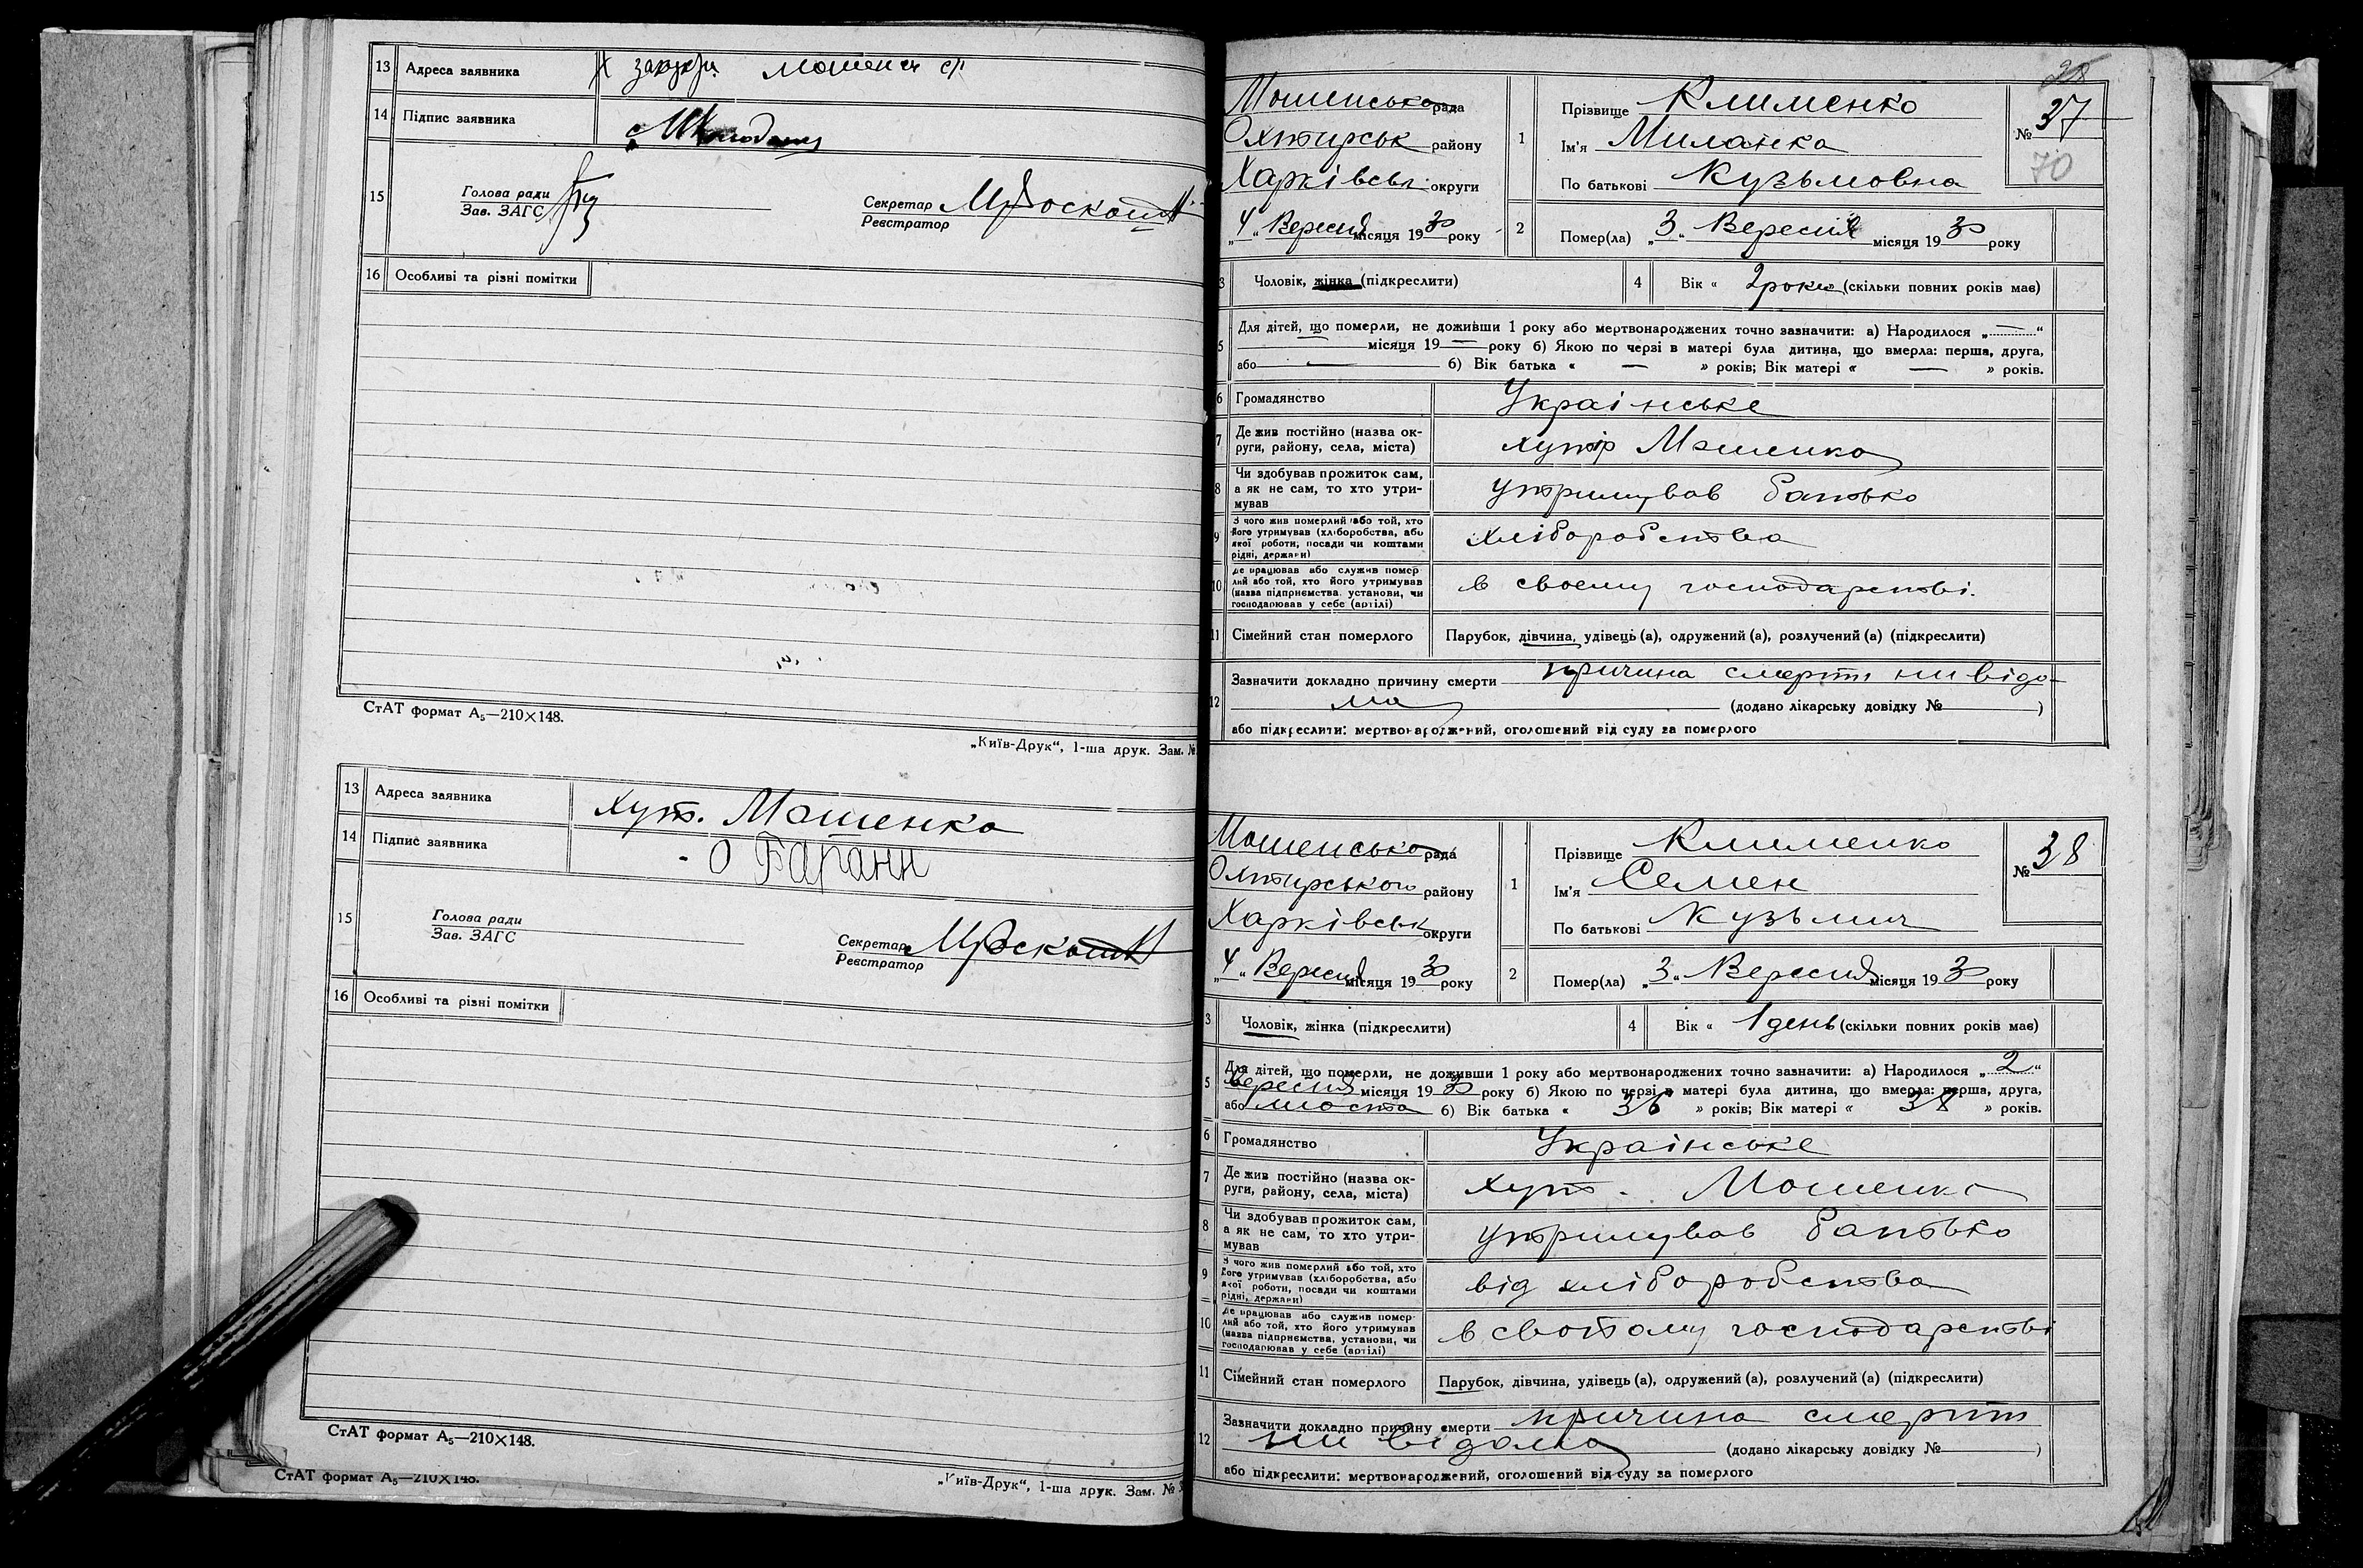 13 Адреса заявника Х
14 Підпис заявника
15 Голова ради
Зав. ЗАГС
Секретар
Реєстратор
16 Особливі та різні помітки
СтАТ формат А₅—210×148.
„Київ-Друк“, 1-ша друк. Зам. №
13 Адреса заявника Хут. Мошенка
14 Підпис заявника
15 Голова ради
Зав. ЗАГС
Секретар
Реєстратор
16 Особливі та різні помітки
СтАТ формат А₅—210×148.
СтАТ формат А₅—210×148.
„Київ-Друк“, 1-ша друк. Зам. №
Мошенсько рада
Охтирськ району
Харківськ округи
„4“ Вересня місяця 1930 року
1 Прізвище Клименко
Ім'я Миланка
По батькові Кузьмовна
№ 37
70
2 Помер(ла) „3“ Вересня місяця 1930 року
3 Чоловік, жінка (підкреслити)
4 Вік « 2 роки » (скільки повних років має)
5 Для дітей, що померли, не доживши 1 року або мертвонароджених точно зазначити: а) Народилося „ — “
— місяця 19 — року б) Якою по черзі в матері була дитина, що вмерла: перша, друга,
або — б) Вік батька « — » років; Вік матері « — » років.
6 Громадянство Украінське
7 Де жив постійно (назва ок-
руги, району, села, міста) хутір Мошенка
8 Чи здобував прожиток сам,
а як не сам, то хто утри-
мував утримував батько
9 З чого жив померлий або той, хто
його утримував (хліборобства, або
якої роботи, посади чи коштами
рідні, держави) хліборобства
10 Де працював або служив помер-
лий або той, хто його утримував
(назва підприємства, установи, чи
господарював у себе (артілі) в своему господарстві.
11 Сімейний стан померлого Парубок, дівчина, удівець (а), одружений (а), розлучений (а) (підкреслити)
12 Зазначити докладно причину смерти причина смерти ни відо-
ма (додано лікарську довідку № )
або підкреслити: мертвонароджений, оголошений від суду за померлого
Мошенсько рада
Охтирського району
Харківськ округи
„4“ Вересня місяця 1930 року
1 Прізвище Клименко
Ім'я Семен
По батькові Кузьмич
№ 38
2 Помер(ла) „3“ Вересня місяця 1930 року
3 Чоловік, жінка (підкреслити)
4 Вік « 1 день (скільки повних років має)
5 Для дітей, що померли, не доживши 1 року або мертвонароджених точно зазначити: а) Народилося „2“
Вересня місяця 1930 року б) Якою по черзі в матері була дитина, що вмерла: перша, друга,
або шоста б) Вік батька « 36 » років; Вік матері « 38 » років.
6 Громадянство Украінське
7 Де жив постійно (назва ок-
руги, району, села, міста) хут. Мошенка
8 Чи здобував прожиток сам,
а як не сам, то хто утри-
мував утримував батько
9 З чого жив померлий або той, хто
його утримував (хліборобства, або
якої роботи, посади чи коштами
рідні, держави) від хліборобства
10 Де працював або служив помер-
лий або той, хто його утримував
(назва підприємства, установи, чи
господарював у себе (артілі) в своîому господарстві
11 Сімейний стан померлого Парубок, дівчина, удівець (а), одружений (а), розлучений (а) (підкреслити)
12 Зазначити докладно причину смерти причина смерти
ни відома (додано лікарську довідку № )
або підкреслити: мертвонароджений, оголошений від суду за померлого